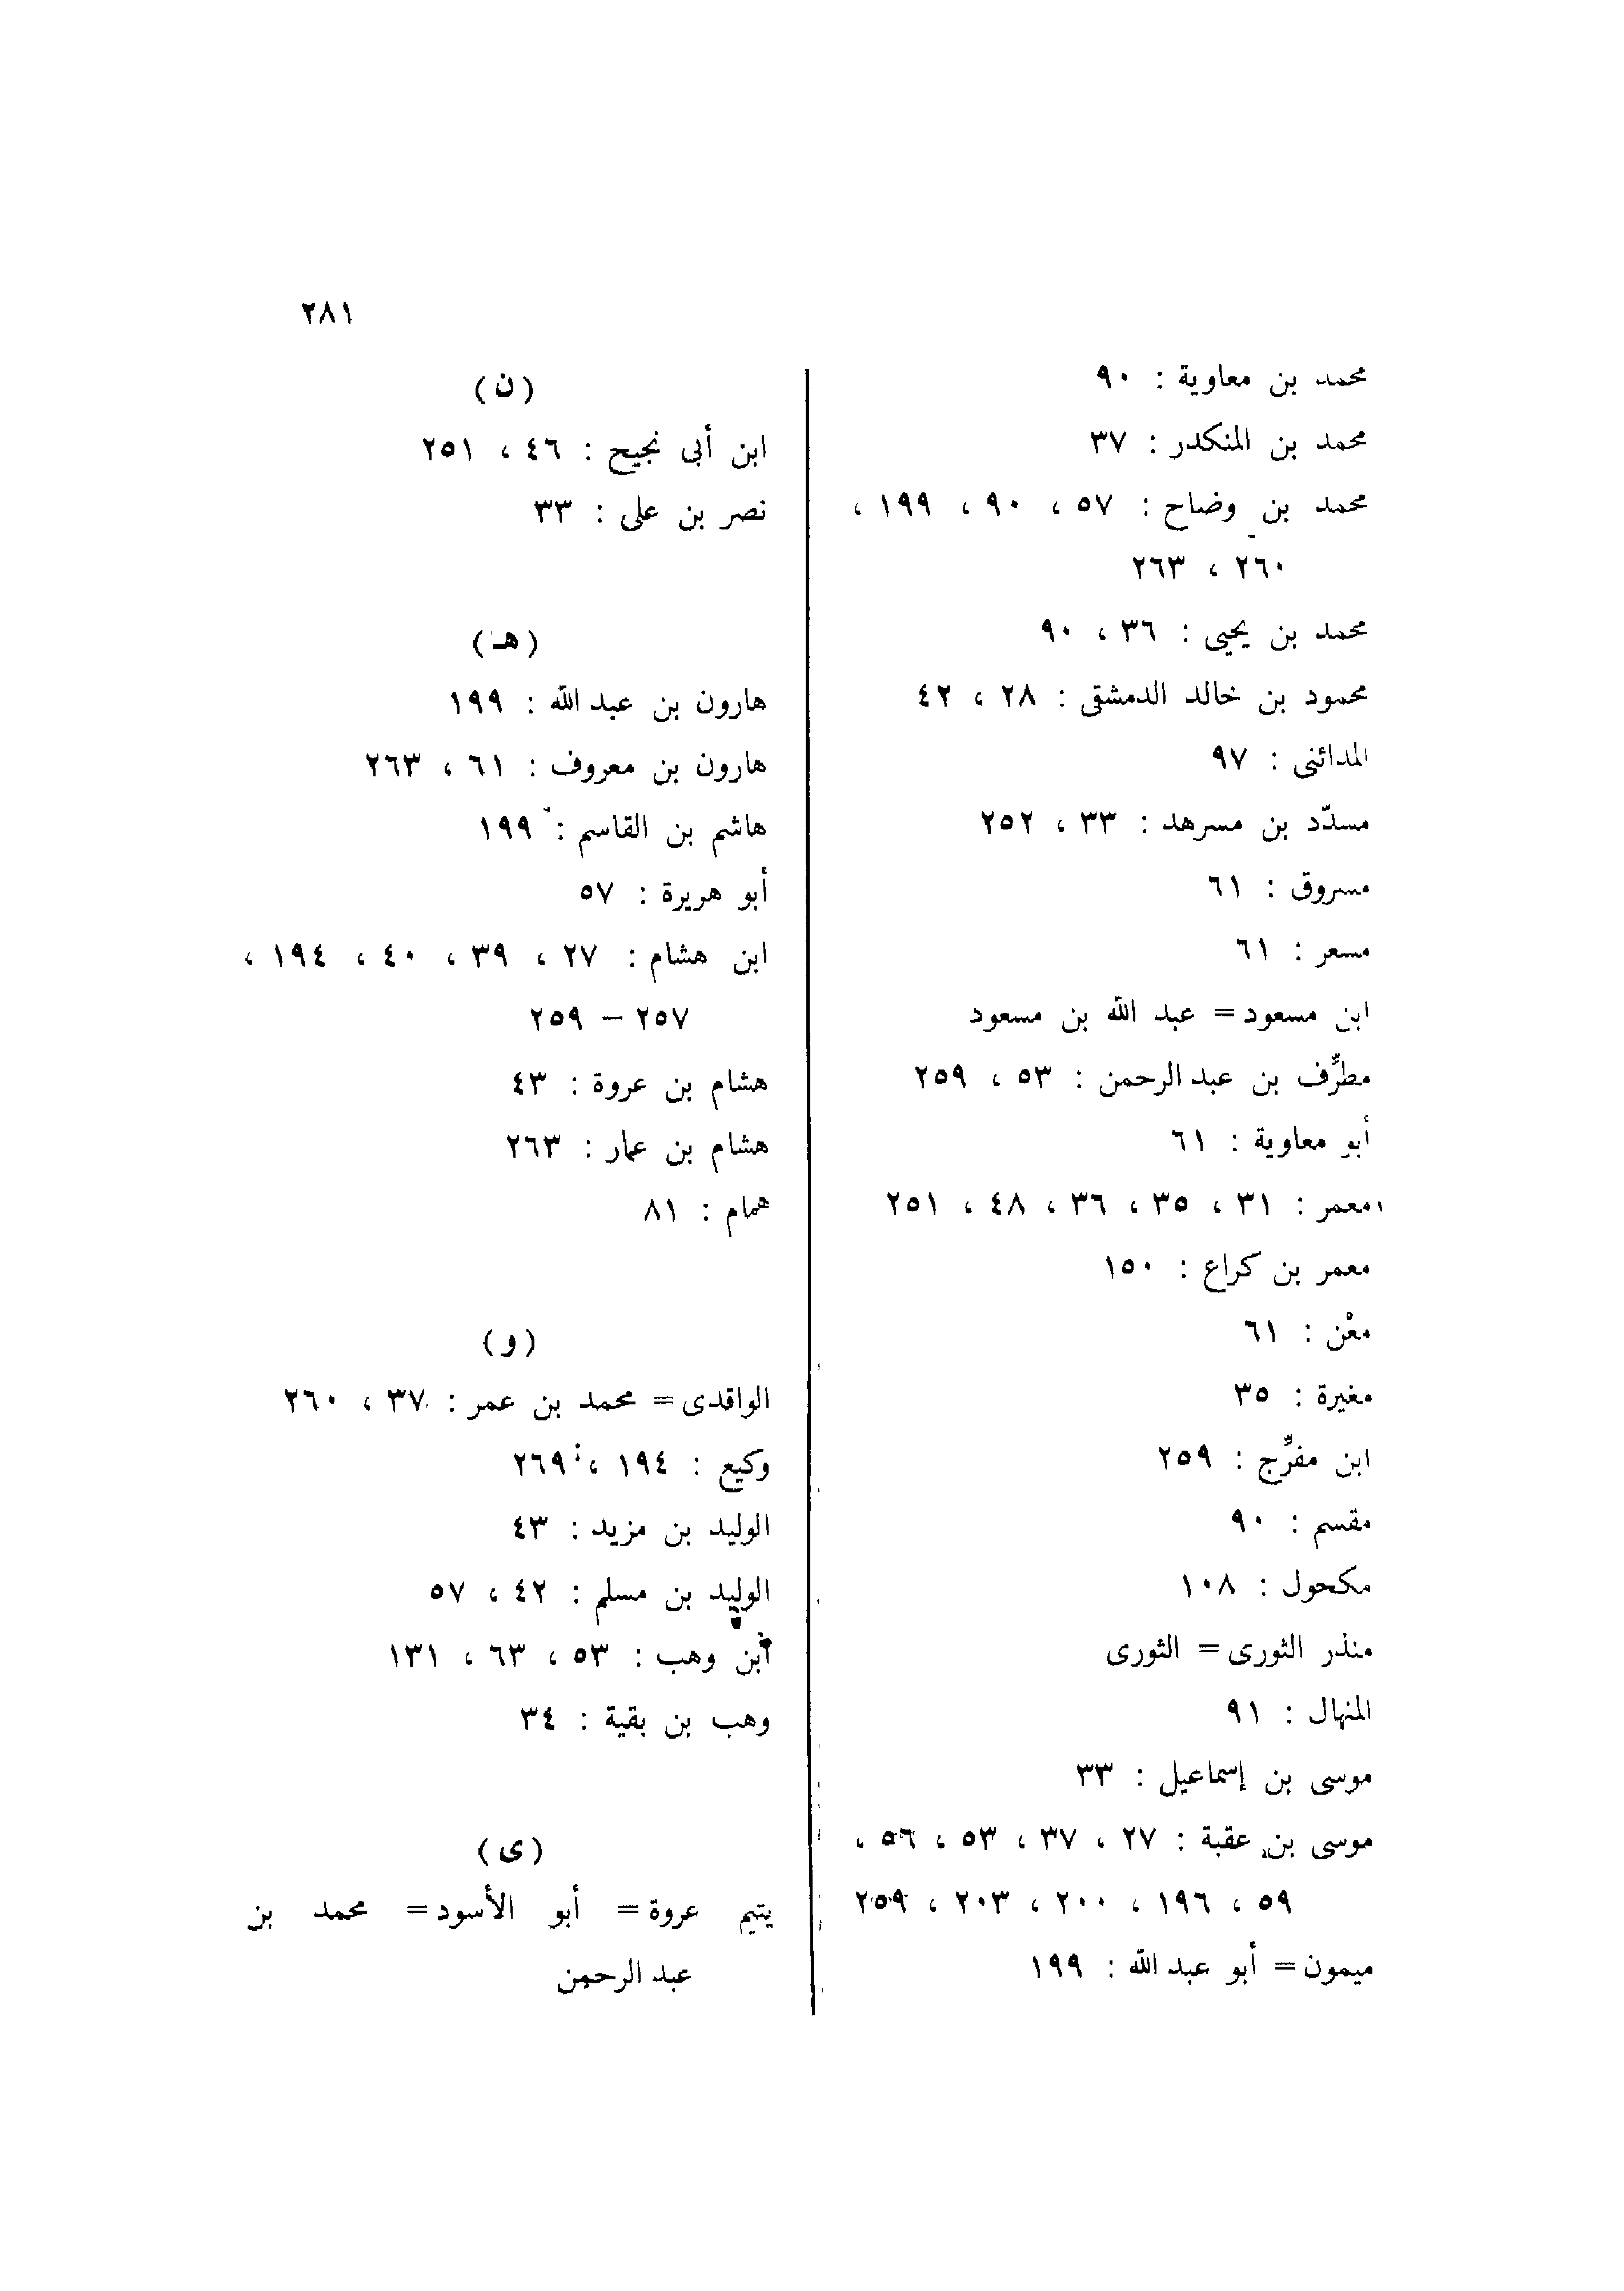 ٢٨١
محمد بن معاوية : ٩٠
محمد بن المنكدر : ٣٧
محمد بن وضاح : ٥٧ ، ٩٠ ، ١٩٩ ،
٢٦٠ ، ٢٦٣
محمد بن يحيى : ٣٦ ، ٩٠
محمود بن خالد الدمشقى : ٢٨ ، ٤٢
المدائنى : ٩٧
مسدّد بن مسرهد : ٣٣ ، ٢٥٢
مسروق : ٦١
مسعر : ٦١
ابن مسعود = عبد الله بن مسعود
مطرِّف بن عبد الرحمن : ٥٣ ، ٢٥٩
أبو معاوية : ٦١
معمر : ٣١ ، ٣٥ ، ٣٦ ، ٤٨ ، ٢٥١
معمر بن كراع : ١٥٠
معْن : ٦١
مغيرة : ٣٥
ابن مفرِّج : ٢٥٩
مقسم : ٩٠
مكحول : ١٠٨
منذر الثورى = الثورى
المنهال : ٩١
موسى بن إسماعيل : ٣٣
موسى بن عقبة : ٢٧ ، ٣٧ ، ٥٣ ، ٥٦ ،
٥٩ ، ١٩٦ ، ٢٠٠ ، ٢٠٣ ، ٢٥٩
ميمون = أبو عبد الله : ١٩٩
(ن)
ابن أبى نجيح : ٤٦ ، ٢٥١
نصر بن على : ٣٣
(هـ)
هارون بن عبد الله : ١٩٩
هارون بن معروف : ٦١ ، ٢٦٣
هاشم بن القاسم : ١٩٩
أبو هريرة : ٥٧
ابن هشام : ٢٧ ، ٣٩ ، ٤٠ ، ١٩٤ ،
٢٥٧ – ٢٥٩
هشام بن عروة : ٤٣
هشام بن عمار : ٢٦٣
همام : ٨١
(و)
الواقدى = محمد بن عمر : ٣٧ ، ٢٦٠
وكيع : ١٩٤ ، ٢٦٩
الوليد بن مزيد : ٤٣
الوليد بن مسلم : ٤٢ ، ٥٧
ابن وهب : ٥٣ ، ٦٣ ، ١٣١
وهب بن بقية : ٣٤
(ى)
يتيم عروة = أبو الأسود = محمد بن
عبد الرحمن